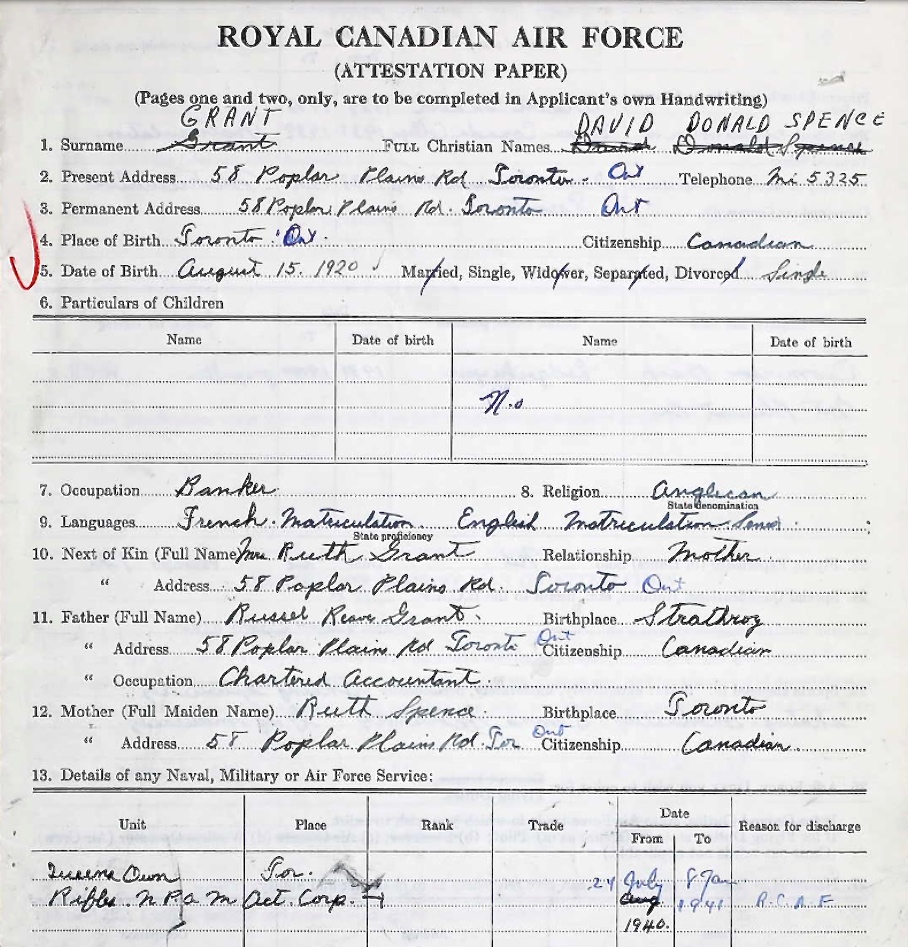 ROYAL CANADIAN AIR FORCE
(ATTESTATION PAPER)
(Pages one and two, only, are to be completed in Applicant's own Handwriting)
GRANT DAVID DONALD SPENCE
1. Surname Grant FULL Christian Names David Donald Spence
2. Present Address 58 Poplar Plains Rd Toronto. Ont Telephone Mi 5325
3. Permanent Address 58 Poplar Plains Rd. Toronto Ont
4. Place of Birth Toronto Ont. Citizenship Canadian
5. Date of Birth August 15. 1920 Married, Single, Widower, Separated, Divorced Single
6. Particulars of Children
Name Date of birth Name Date of birth
No
7. Occupation Banker 8. Religion Anglican
State denomination
9. Languages French. Matriculation. English Matriculation
State proficiency
10. Next of Kin (Full Name) Mrs Ruth Grant Relationship Mother
" Address 58 Poplar Plains Rd. Toronto Ont
11. Father (Full Name) Russel Grant. Birthplace Strathroy
" Address 58 Poplar Plains Rd Toronto Ont Citizenship Canadian
" Occupation Chartered Accountant.
12. Mother (Full Maiden Name) Ruth Spence. Birthplace Toronto
" Address 58 Poplar Plains Rd. Tor Ont Citizenship Canadian.
13. Details of any Naval, Military or Air Force Service:
Unit Place Rank Trade Date Reason for discharge
From To
Queens Own Tor. 24 July 8 Jan
Rifles. N P a M Act. Corp. Aug 1941 R.C.A.F
1940.